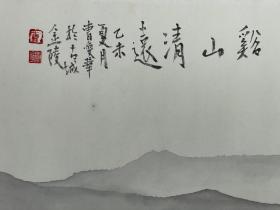 谿山清遠
乙未
夏月
曹雯華
於古城
金陵